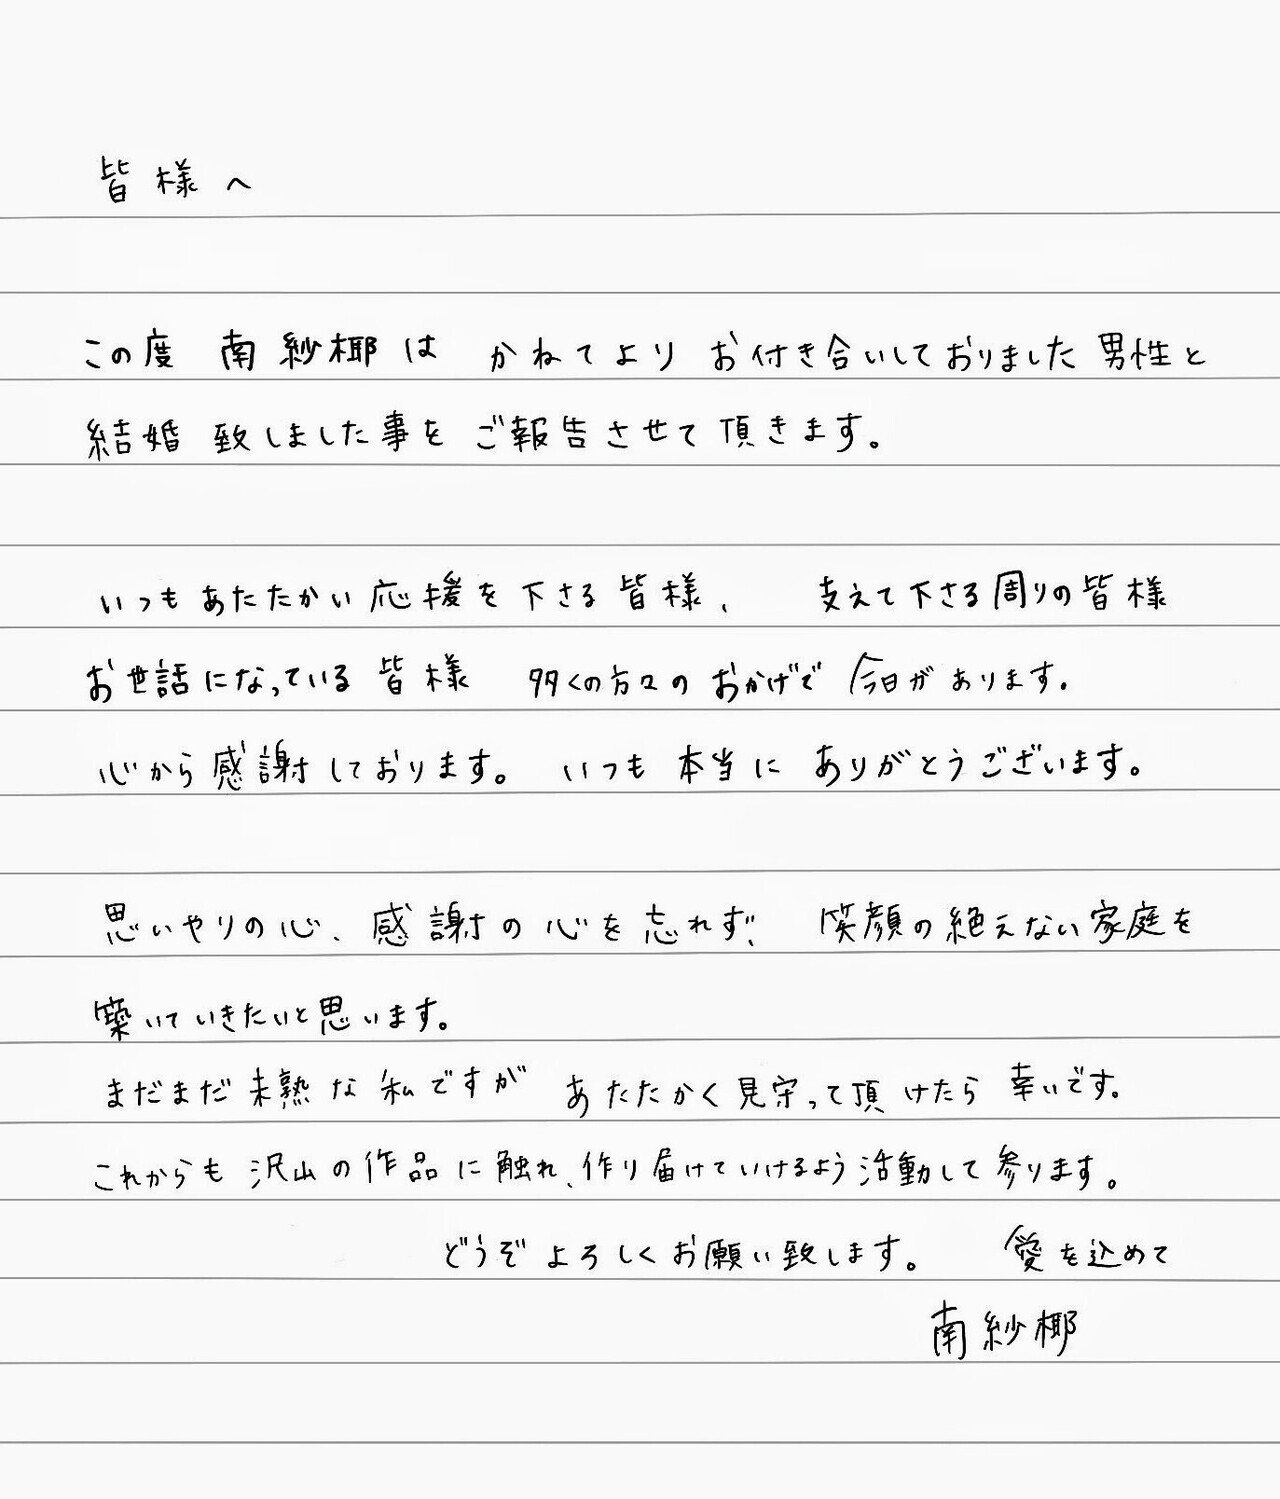 皆様へ
この度 南紗椰は かねてより お付き合いしておりました 男性と
結婚 致しました事を ご報告させて頂きます。
いつも あたたかい 応援を 下さる 皆様、 支えて下さる 周りの皆様
お世話になっている 皆様 多くの方々の おかげで 今日があります。
心から感謝しております。 いつも 本当に ありがとうございます。
思いやりの心、感謝の心を忘れず、 笑顔の絶えない家庭を
築いていきたいと思います。
まだまだ未熟な私ですが あたたかく見守って頂けたら 幸いです。
これからも 沢山の作品に触れ、作り届けていけるよう活動して参ります。
どうぞよろしくお願い致します。 愛を込めて
南紗椰